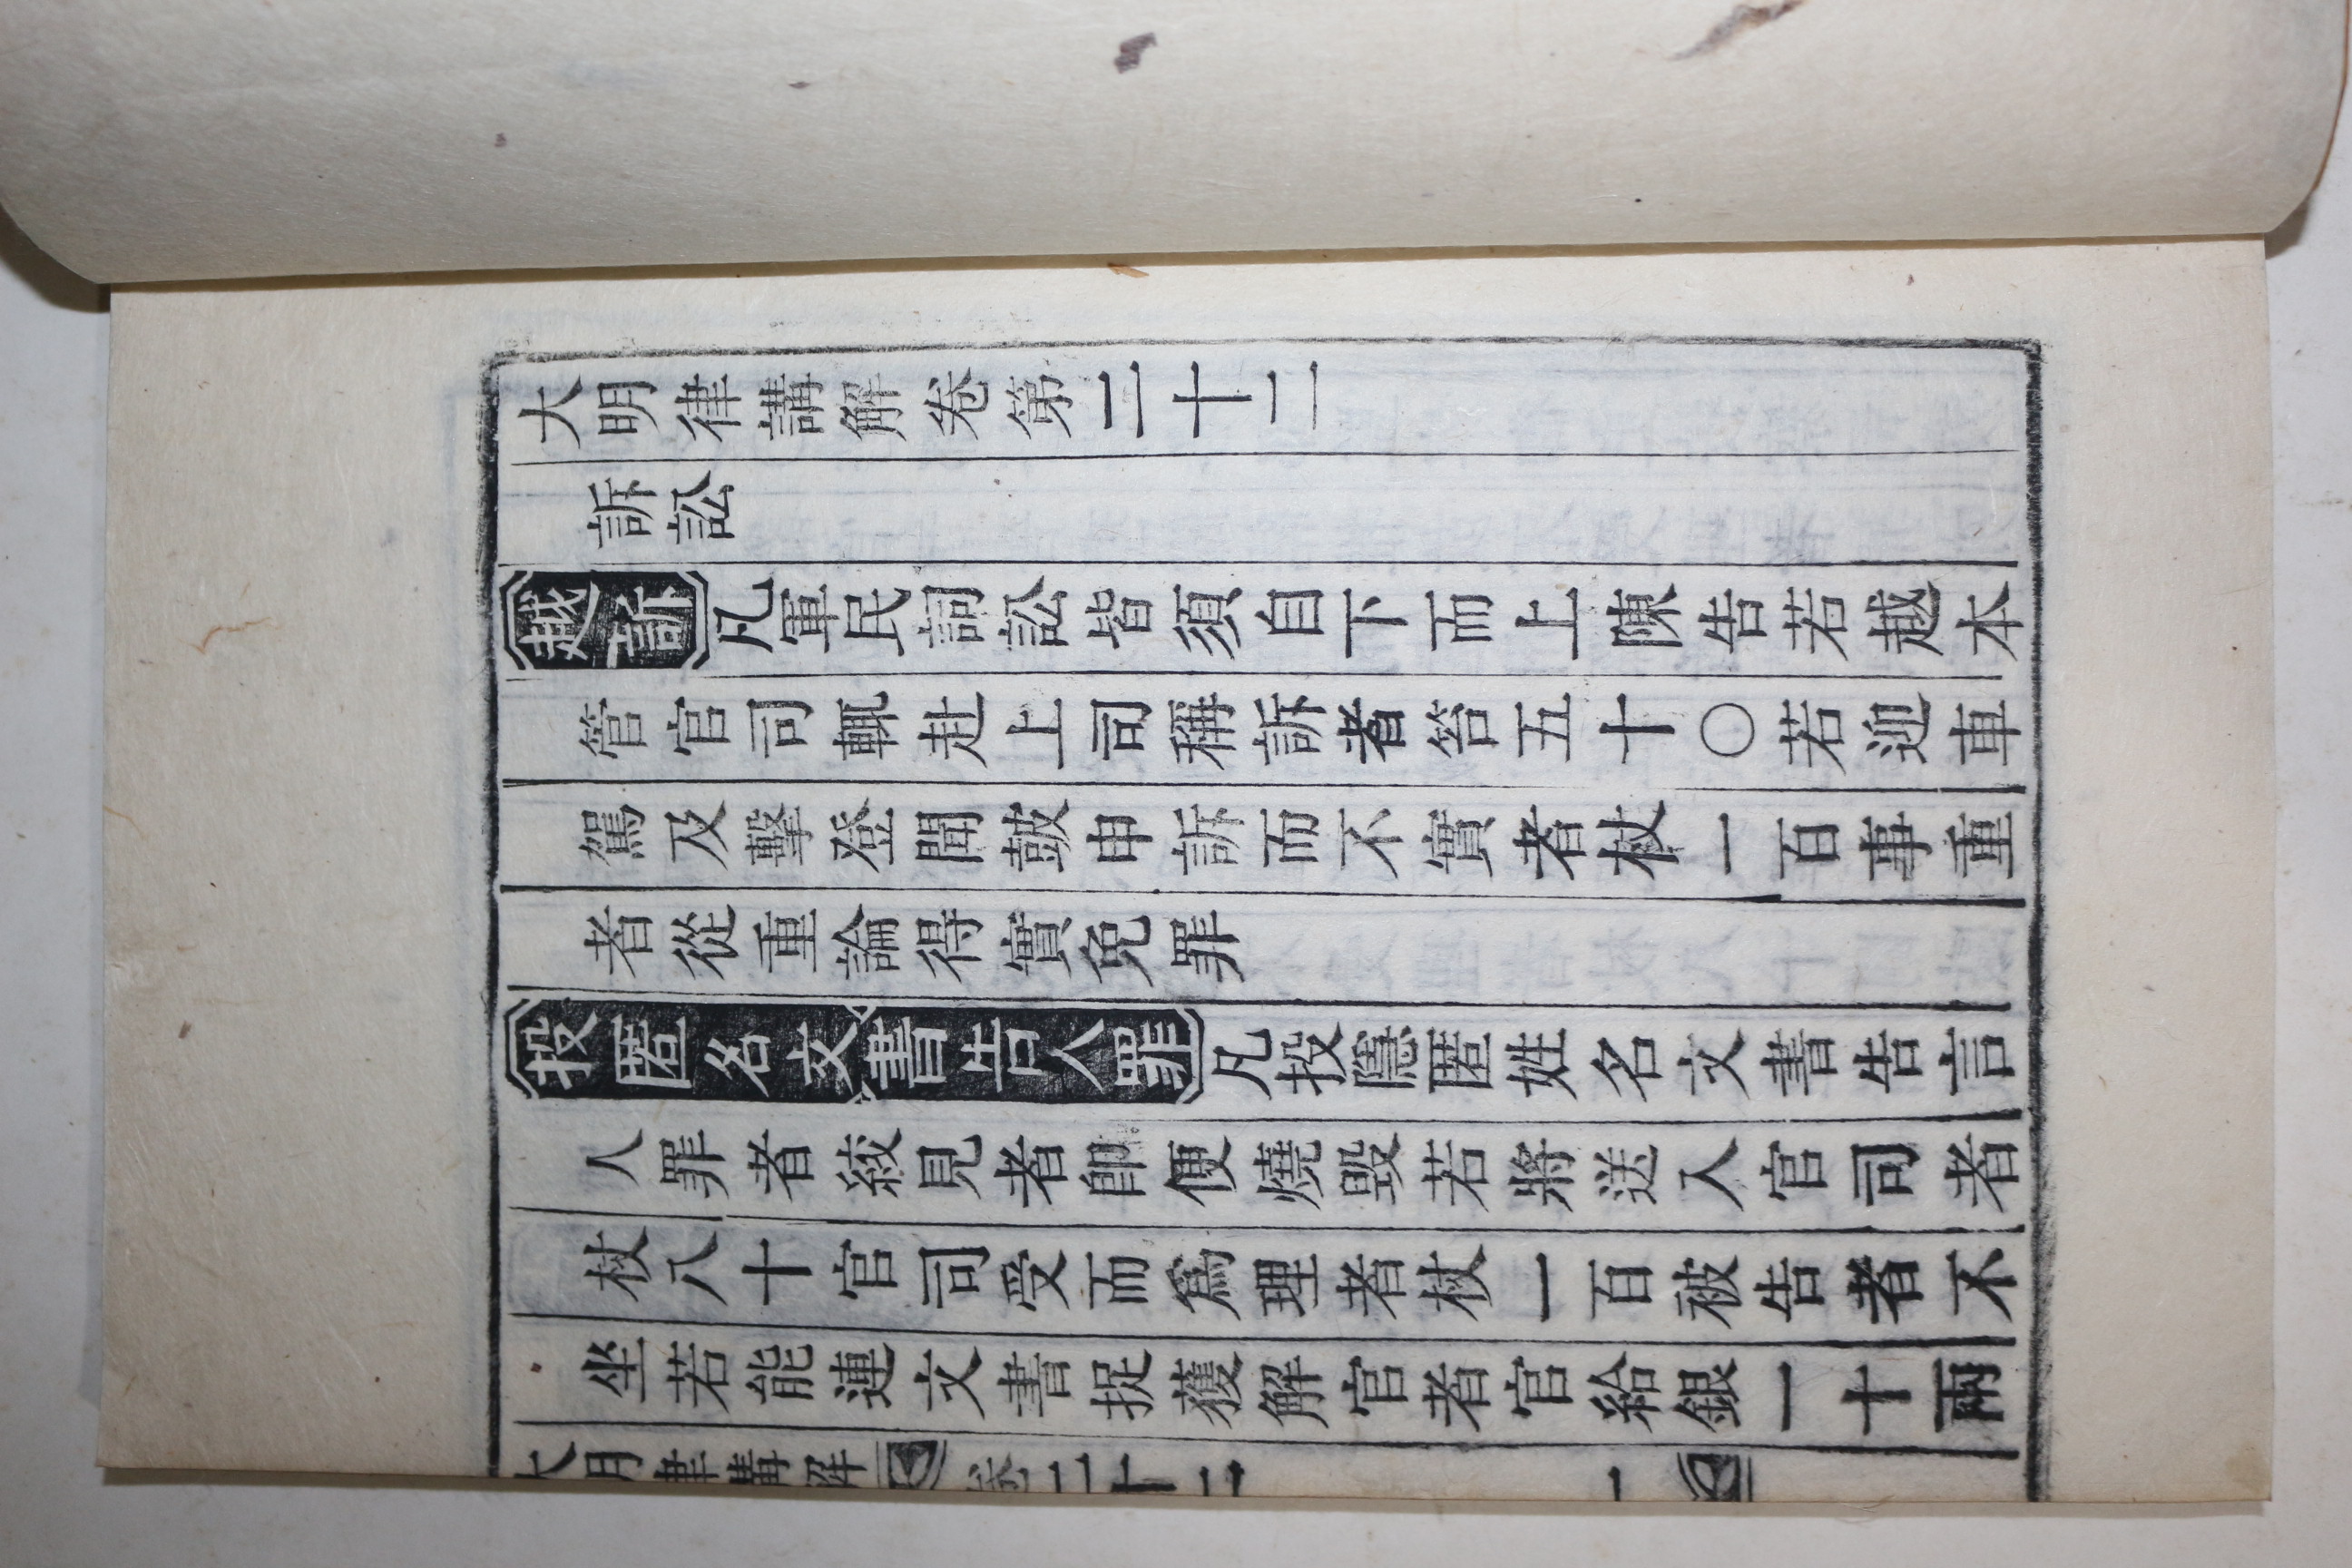 大明律講解卷第二十二
訴訟
越訴凡軍民詞訟皆須自下而上陳告若越本
管官司輒赴上司稱訴者笞五十○若迎車
駕及擊登聞皷申訴而不實者杖一百事重
者從重論得實免罪
投匿名文書告人罪凡投隱匿姓名文書告言
人罪者絞見者卽便燒毀若將送入官司者
杖八十官司受而爲理者杖一百被告者不
坐若能連文書捉獲解官者官給銀一十兩
大明律講解 卷二十二 一